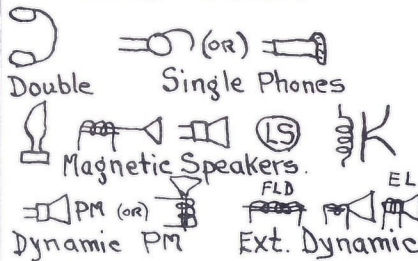 (OR)
Double Single Phones
LS
Magnetic Speakers.
PM (OR) FLD EL
Dynamic PM Ext. Dynamic